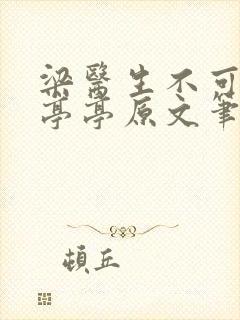 梁醫生不可
亭亭原文筆
頓丘